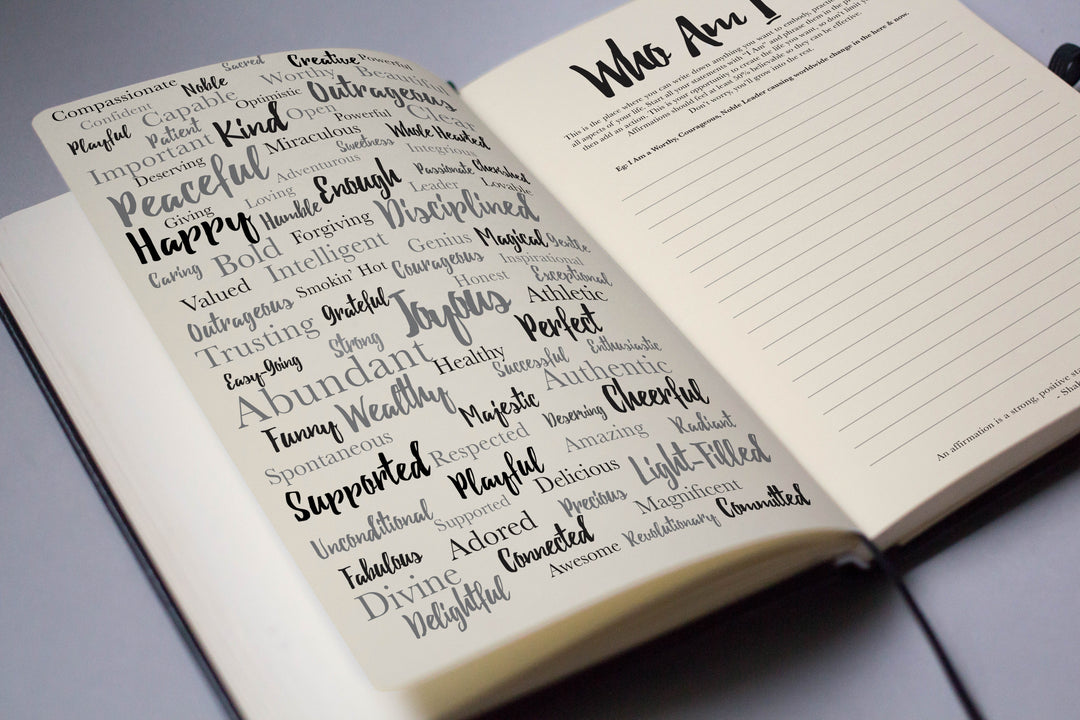 Compassionate Noble Sacred Creative Powerful
Confident Capable Worthy Beautiful
Playful Patient Optimistic Outrageous
Important Kind Open Powerful Clear
Deserving Miraculous Whole Hearted
Peaceful Adventurous Sweetness Integrious
Giving Loving Enough Passionate Cherished
Happy Humble Leader Lovable
Caring Bold Forgiving Disciplined
Valued Intelligent Genius Magical Gentle
Outrageous Smokin' Hot Courageous Inspirational
Trusting Grateful Joyous Honest Exceptional
Easy-Going Strong Athletic
Abundant Healthy Perfect
Funny Wealthy Successful Enthusiastic
Spontaneous Majestic Authentic
Supported Respected Deserving Cheerful
Unconditional Playful Amazing Radiant
Fabulous Supported Delicious Light-Filled
Divine Adored Precious Magnificent
Delightful Connected Revolutionary Committed
Awesome
Who Am I
This is the place where you can write down anything you want to embody,
all aspects of your life. Start all your statements with "I Am" and phrase them in the
then add an action. This is your opportunity to create the life you want, so don't limit
Affirmations should feel at least 50% believable so they can be effective.
Don't worry, you'll grow into the rest.
Eg: I Am a Worthy, Courageous, Notable Leader causing worldwide change in the here & now.
An affirmation is a strong, positive